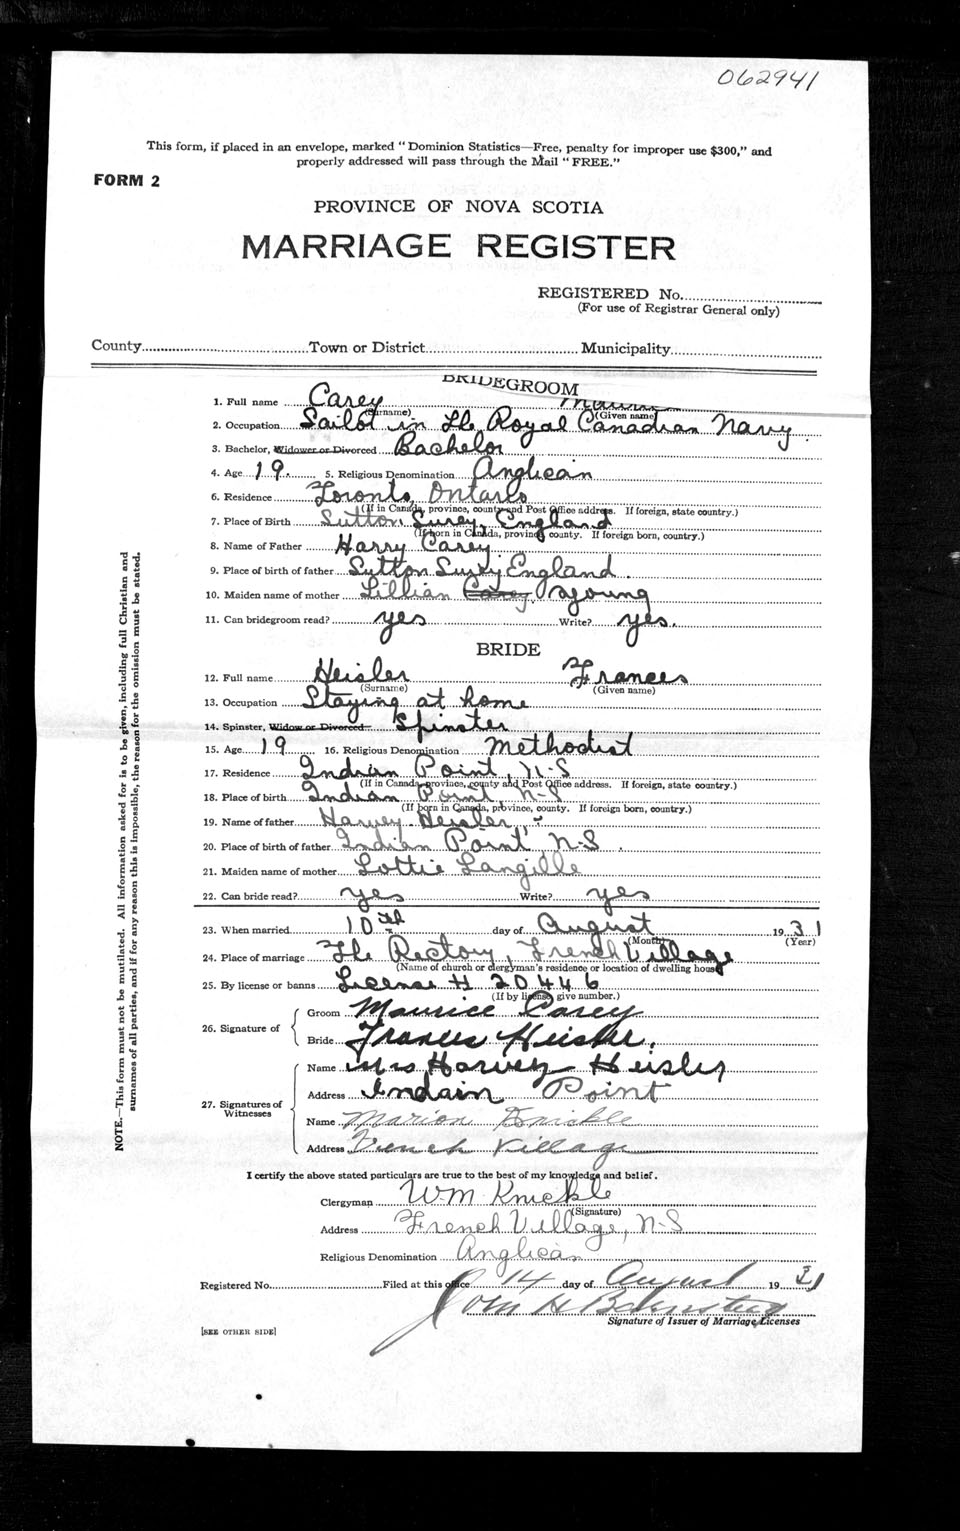 062941
This form, if placed in an envelope, marked "Dominion Statistics—Free, penalty for improper use $300," and
properly addressed will pass through the Mail "FREE."
FORM 2
PROVINCE OF NOVA SCOTIA
MARRIAGE REGISTER
REGISTERED No.
(For use of Registrar General only)
County Town or District Municipality
BRIDEGROOM
1. Full name Carey
(Surname) (Given name)
2. Occupation Sailor in the Royal Canadian Navy.
3. Bachelor, Widower or Divorced Bachelor
4. Age 19. 5. Religious Denomination Anglican
6. Residence Toronto, Ontario
(If in Canada, province, county and Post Office address. If foreign, state country.)
7. Place of Birth Sutton, Surey, England
(If born in Canada, province, county. If foreign born, country.)
8. Name of Father Harry Carey
9. Place of birth of father Sutton Surey, England.
10. Maiden name of mother Lillian Carey Young
11. Can bridegroom read? yes Write? yes.
BRIDE
12. Full name Heisler Frances
(Surname) (Given name)
13. Occupation Staying at home
14. Spinster, Widow or Divorced Spinster
15. Age 19 16. Religious Denomination Methodist
17. Residence Indian Point, N-S
(If in Canada, province, county and Post Office address. If foreign, state country.)
18. Place of birth Indian Point, N-S
(If born in Canada, province, county. If foreign born, country.)
19. Name of father Harvey Heisler,
20. Place of birth of father Indian Point, N-S.
21. Maiden name of mother Lottie Langille
22. Can bride read? yes Write? yes
23. When married 10th day of August 1931
(Month) (Year)
24. Place of marriage The Rectory, French Village
(Name of church or clergyman's residence or location of dwelling house)
25. By license or banns License # 20446
(If by license, give number.)
26. Signature of
Groom Maurice Carey
Bride Frances Heisler.
27. Signatures of Witnesses
Name Mrs Harvey Heisler
Address Indain Point
Name Marion Knickle
Address French Village
I certify the above stated particulars are true to the best of my knowledge and belief.
Clergyman W-M Knickle
(Signature)
Address French Village, N-S
Religious Denomination Anglican
Registered No. Filed at this office 14 day of August 1931
John H
Signature of Issuer of Marriage Licenses
[SEE OTHER SIDE]
NOTE.—This form must not be mutilated. All information asked for is to be given, including full Christian and
surnames of all parties, and if for any reason this is impossible, the reason for the omission must be stated.